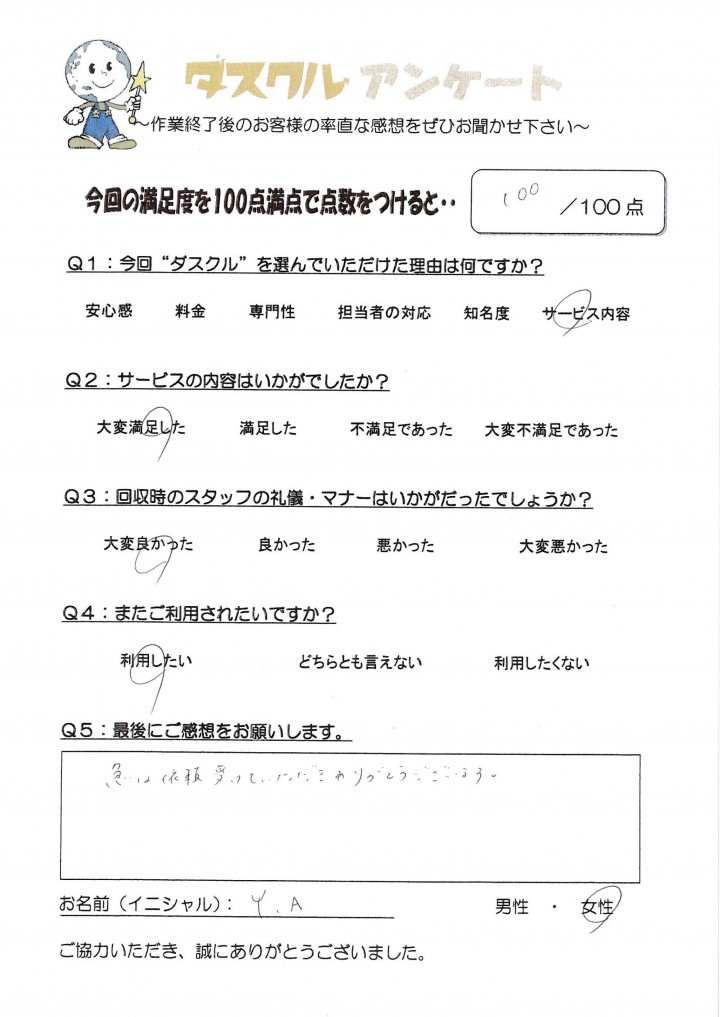 ダスクル アンケート
～作業終了後のお客様の率直な感想をぜひお聞かせ下さい～
今回の満足度を100点満点で点数をつけると・・ 100 /100点
Q1：今回“ダスクル”を選んでいただけた理由は何ですか？
安心感 料金 専門性 担当者の対応 知名度 サービス内容
Q2：サービスの内容はいかがでしたか？
大変満足した 満足した 不満足であった 大変不満足であった
Q3：回収時のスタッフの礼儀・マナーはいかがだったでしょうか？
大変良かった 良かった 悪かった 大変悪かった
Q4：またご利用されたいですか？
利用したい どちらとも言えない 利用したくない
Q5：最後にご感想をお願いします。
依頼受けていただきありがとうございます。
お名前（イニシャル）： Y.A 男性 ・ 女性
ご協力いただき、誠にありがとうございました。